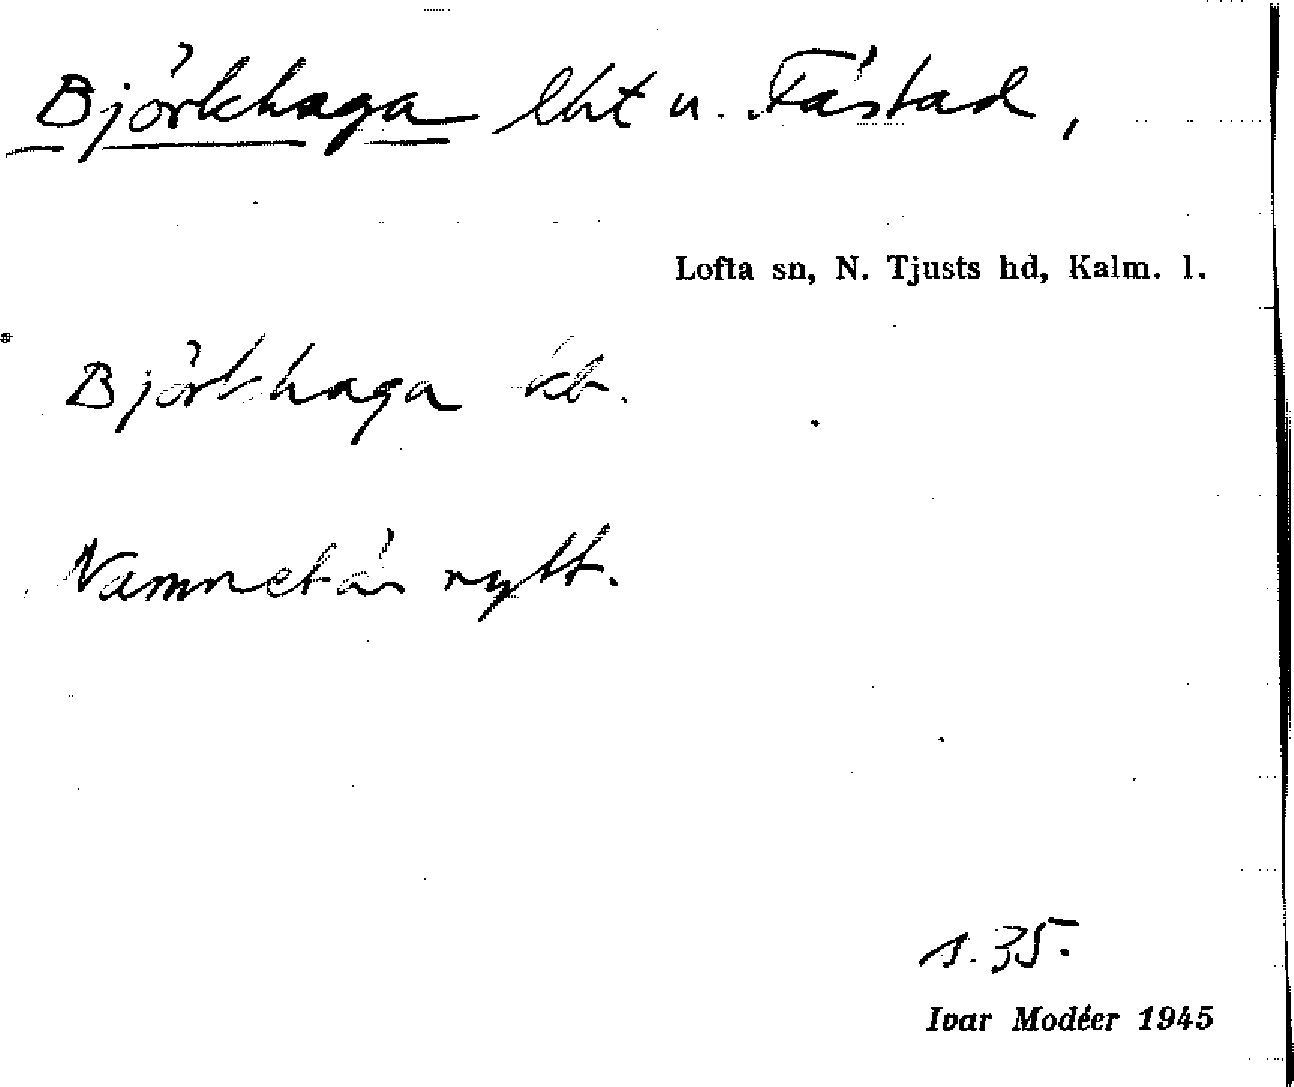 Björkhaga lht u. Fästad,
Lofta sn, N. Tjusts hd, Kalm. l.
Björkhaga
Namnet är nytt.
s. 35.
Ivar Modéer 1945